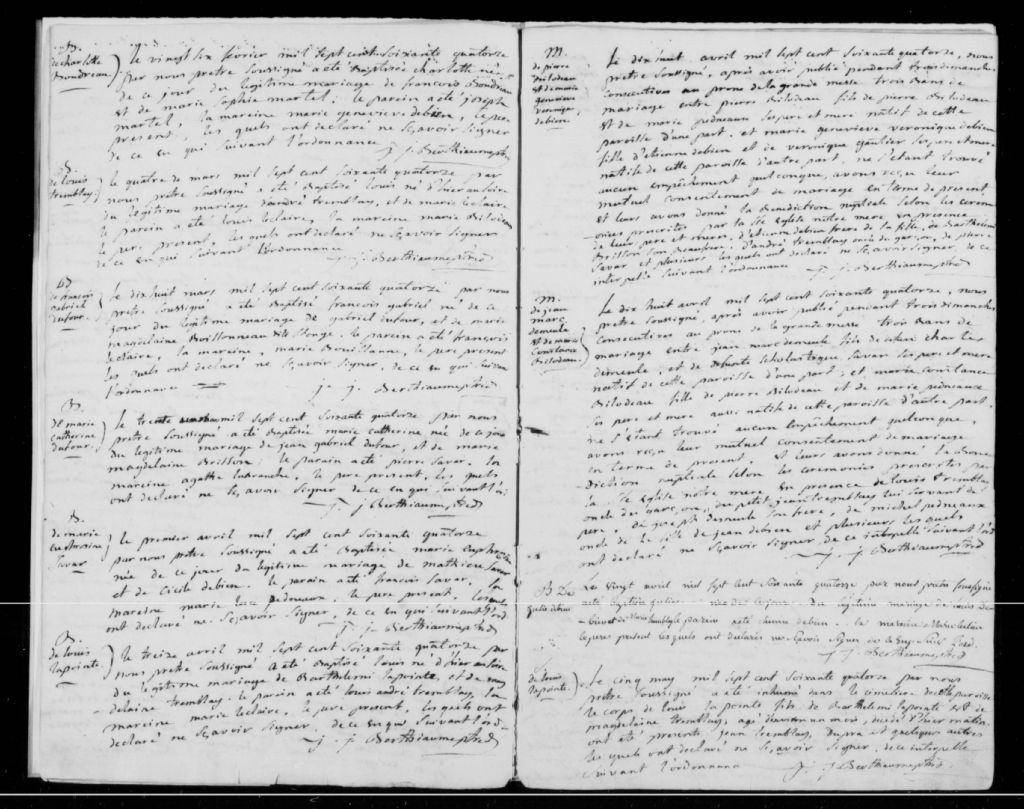 B.
de charlotte
Boudreau
le vingt six fevrier mil sept cent soixante quatorze
par nous prêtre soussigné a été baptisée charlotte née
de ce jour du legitime mariage de francois Boudreau
et de marie sophie martel; le parein a été joseph
martel, la mareine marie genevieve debien, le pere
present, les quels ont declaré ne sçavoir signer
de ce en qui suivant l'ordonnance
j. j. Berthiaume ptre
B.
de louis
tremblay.
le quatre de mars mil sept cent soixante quatorze par
nous prêtre soussigné a été baptisé louis né d'hier au soir
du legitime mariage d'andré tremblay, et de marie leclaire
le parein a été louis leclaire, la mareine marie Bilodeau
le pere present, les quels ont declaré ne sçavoir signer
de ce en qui suivant l'ordonnance
j. j. Berthiaume ptre
B
de françois
gabriel
dufour.
le dix huit mars mil sept cent soixante quatorze par nous
prêtre soussigné a été baptisé françois gabriel né de ce
jour du legitime mariage de gabriel dufour, et de marie
magdelaine Boissonneau dit st onge. le parein a été françois
leclaire, la mareine, marie, le pere present
les quels ont declaré ne sçavoir signer. de ce en qui suivan
l'ordonnance
j. j. Berthiaume ptre
B.
de marie
catherine
dufour.
le trente mil sept cent soixante quatorze par nous
prêtre soussigné a été baptisée marie catherine née de ce jour
du legitime mariage de jean gabriel dufour, et de marie
magdelaine Brisson; le parain a été pierre savar. la
mareine agathe, le pere present, les quels
ont declaré ne sçavoir signer de ce en qui suivant l'or
j. j Berthiaume ptre
B.
de marie
euphrosine
savar
le premier avril mil sept cent soixante quatorze
par nous prêtre soussigné a été baptisée marie euphrosine
née de ce jour du legitime mariage de mathieu savar
et de cicile debien. le parain a été françois savar, la
mareine marie, le pere present, les quels
ont declaré ne sçavoir signer, de ce en qui suivant l'ord
j. j. Berthiaume ptre
B.
de louis
lapointe.
le treize avril mil sept cent soixante quatorze par
nous prêtre soussigné a été baptisé louis né d'hier au soir
du legitime mariage de Barthelemi lapointe, et de mag
delaine tremblay. le parain a été louis andré tremblay, la
mareine marie leclaire, le pere present, les quels ont
declaré ne sçavoir signer, de ce en qui suivant l'ord
j. j Berthiaume ptre
M.
de pierre
bilodeau
et de marie
genevieve
veronique
debien.
le dix huit avril mil sept cent soixante quatorze, nous
prêtre soussigné, après avoir publié pendent trois dimanches
consecutives au prone de la grande messe trois bans de
mariage entre pierre Bilodeau fils de pierre Bilodeau
et de marie pedneau ses pere et mere natif de cette
paroisse d'une part. et marie genevieve veronique debien
fille d'etienne debien et de veronique gautier ses pere et mere
natife de cette paroisse d'autre part, ne s'etant trouvé
aucun empêchement quelconque, avons reçu leur
mutuel consentement de mariage en terme de present
et leurs avons donné la Benediction nuptiale selon les ceremo
onies prescrites par la Ste Eglise nôtre mere en presence
de leur pere et mere, d'etienne debien frere de la fille, de Barthelemi
Brisson son Beaufrere, d'andré tremblay oncle du garçon, de pierre
savar et plusieurs les quels ont declaré ne sçavoir signer de ce
interpellés suivant l'ordonnance j. j. Berthiaume ptre
M.
de jean
marc
demeule
et de marie
constance
Bilodeau.
le dix huit avril mil sept cent soixante quatorze, nous
prêtre soussigné, après avoir publié pendant trois dimanches
consecutives au prone de la grande messe trois Bans de
mariage entre jean marc demeule fils de charle
demeule, et de defunte scholastique savar ses pere et mere
natif de cette paroisse d'une part; et marie constance
Bilodeau fille de pierre Bilodeau et de marie pedneaux
ses pere et mere aussi natife de cette paroisse d'autre part.
ne s'etant trouvé aucun empêchement quelconque,
avons reçu leur mutuel consentement de mariage
en terme de present, et leurs avons donné la Bene
diction nuptiale selon les ceremonies prescrites par
la Ste Eglise nôtre mere en presence de louis tremblay
oncle du garçon, du petit jean tremblay lui servant de
pere, de joseph demeule son frere, de michel pedneaux
oncle de la fille de jean debien et plusieurs les quels
ont declaré ne sçavoir signer, de ce interpellé suivant l'ord
j. j. Berthiaume ptre
B De
julie debien
Le vingt avril mil sept cent soixante quatorze par nous prêtre soussigné
a été baptisée julie née de ce jour du legitime mariage de
et de Marie tremblay le parein a été debien. la mareine Marie
le pere present les quels ont declarés ne sçavoir signer de ce Enq suiv l'ord.
j. j. Berthiaume ptre
de louis
lapointe.
le cinq may mil sept cent soixante quatorze par nous
prêtre soussigné a été inhumé dans le cimetiere de cette paroisse
le corps de louis la pointe fils de Barthelemi lapointe et de
magdelaine tremblay, agé d'environ un mois, decedé d'hier matin,
ont été presents jean tremblay, dupra et quelques autres
les quels ont declaré ne sçavoir signer. de ce interpellé
suivant l'ordonnance j. j. Berthiaume ptre.